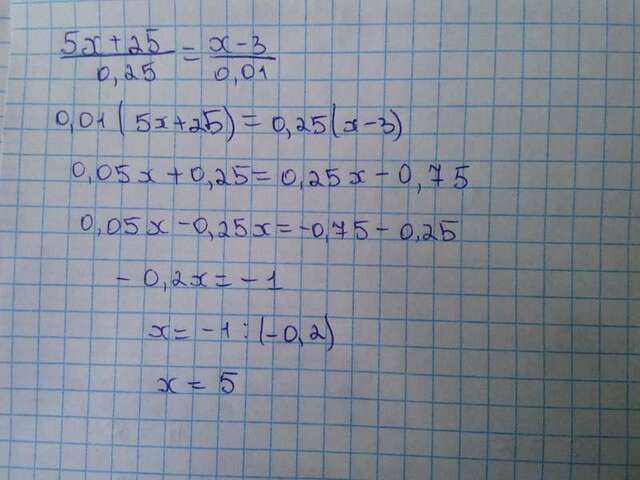 5x+25/0,25 = x-3/0,01
0,01(5x+25)=0,25(x-3)
0,05x+0,25=0,25x-0,75
0,05x-0,25x=-0,75-0,25
-0,2x=-1
x=-1:(-0,2)
x=5